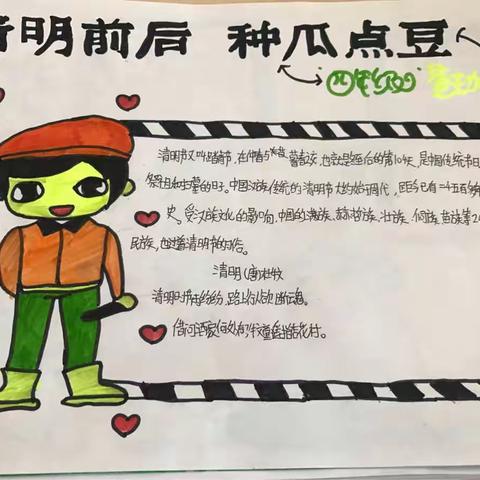 清明前后 种瓜点豆
四年级
清明节又叫踏青节,在仲春与暮春之交,也就是冬至后的第10
祭祖和扫墓的日子。中国汉族传统的清明节大约始于周代,距今已有二千五百多年
史。受汉族文化的影响,中国的满族、赫哲族、壮族、侗族、苗族等2
民族,也过着清明节的习俗。
清明(唐)杜牧
清明时节雨纷纷,路上行人欲断魂。
借问酒家何处有,牧童遥指杏花村。